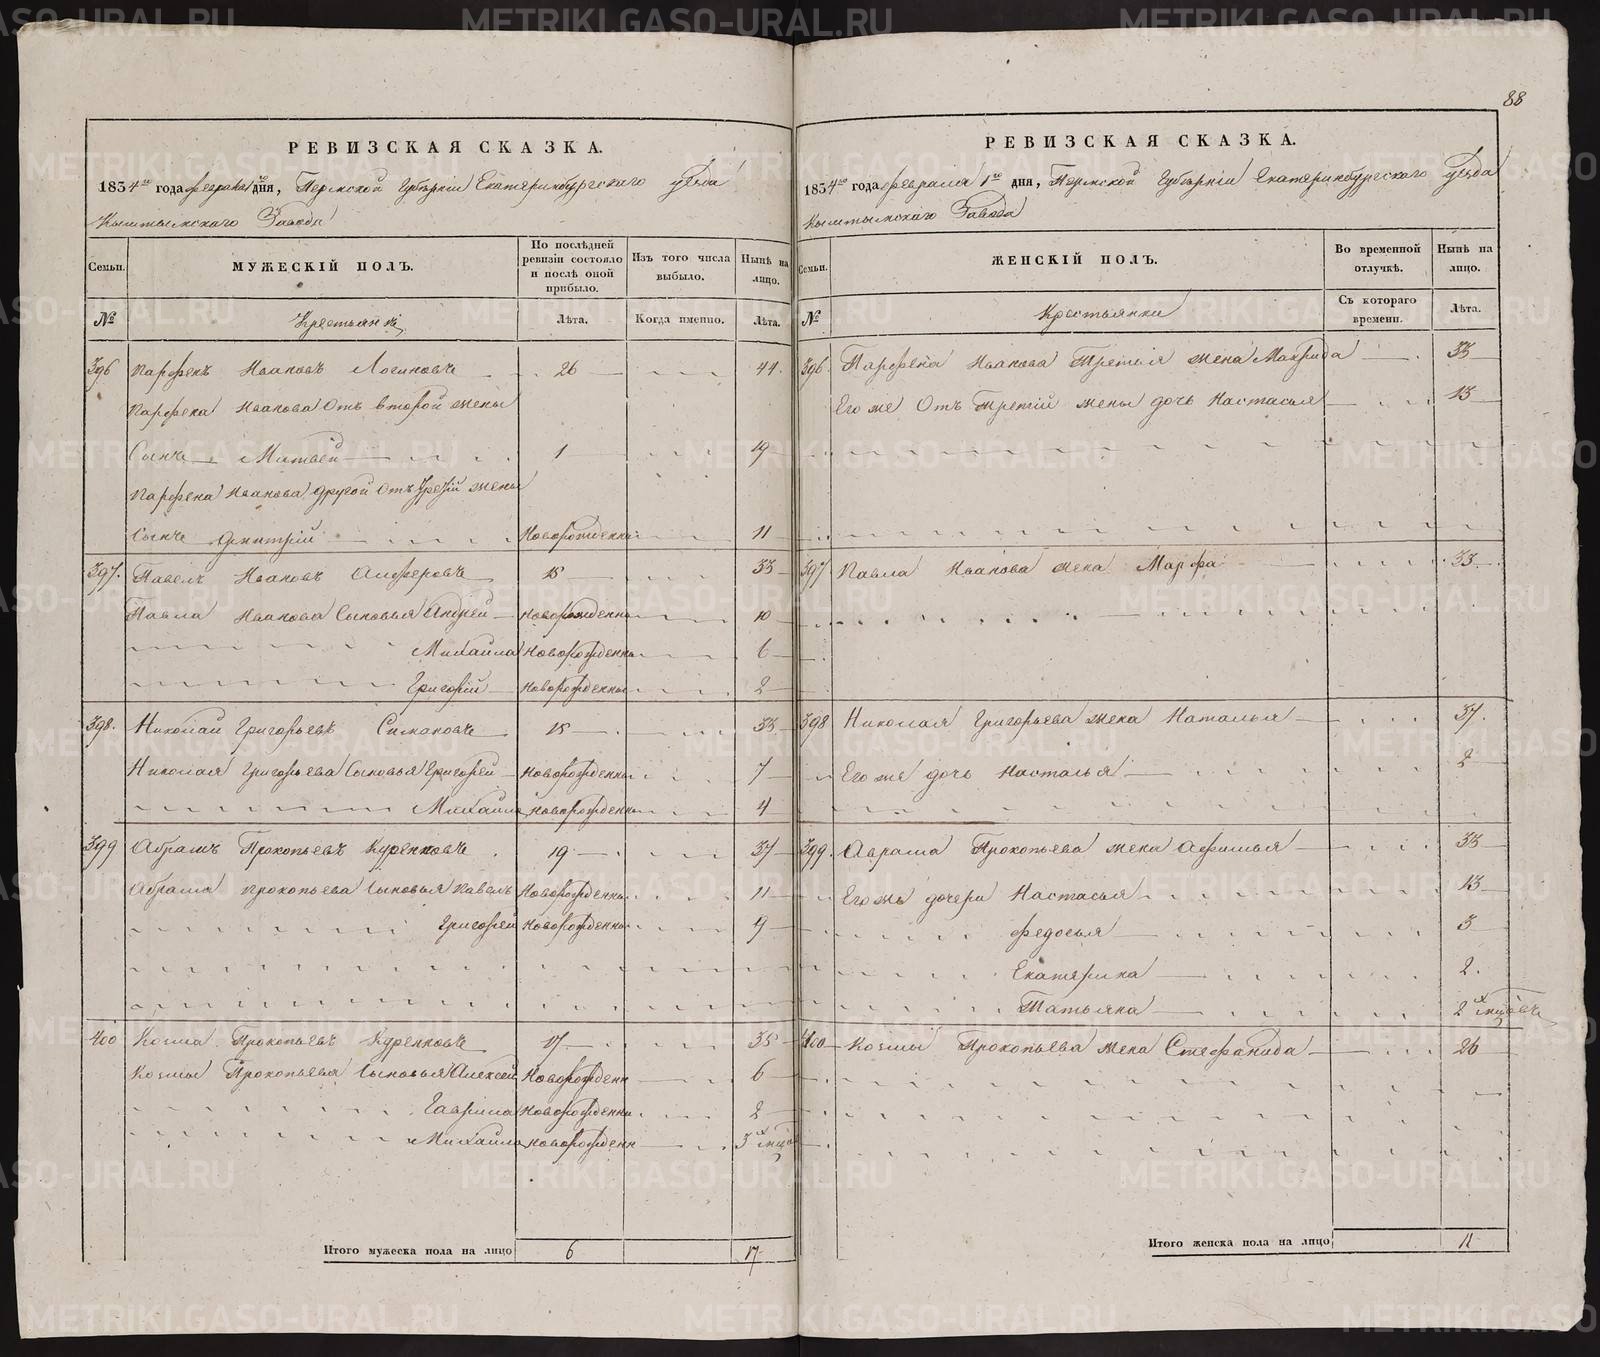 88
РЕВИЗСКАЯ СКАЗКА.
1834го года февраля 1го дня, Пермской Губерніи Екатеринбургскаго уезда
Кыштымскаго Завода
Семьи.
МУЖЕСКІЙ ПОЛЪ.
По послѣдней ревизіи состояло и послѣ оной прибыло.
Изъ того числа выбыло.
Нынѣ на лицо.
№
Крестьяне
Лѣта.
Когда именно.
Лѣта.
396 Парфенъ Ивановъ Логиновъ 26 44
Парфена Иванова Отъ второй жены
Сынъ Матвей 1 19
Парфена Иванова другой Отъ Третій жены
Сынъ Дмитрій Новорожденны 11
397. Павелъ Ивановъ Алферовъ 15 33
Павла Иванова Сыновья Андрей Новорожденны 10
Михайла Новорожденны 6
Григорій Новорожденны 2
398. Николай Григорьевъ Симановъ 15 33
Николая Григорьева Сыновья Григорей Новорожденны 7
Михайла Новорожденны 4
399 Абрамъ Прокопьевъ Куренковъ 19 37
Абрама Прокопьева Сыновья Павелъ Новорожденны 11
Григорей Новорожденны 9
400 Козма Прокопьевъ Куренковъ 17 35
Козмы Прокопьева Сыновья Алексей Новорожденн 6
Гаврила Новорожденны 2
Михайла Новорожденн 3х мцо
Итого мужеска пола на лицо 6 17
РЕВИЗСКАЯ СКАЗКА.
1834го года февраля 1го дня, Пермской Губерніи Екатеринбургскаго уезда
Кыштымскаго Завода
Семьи.
ЖЕНСКІЙ ПОЛЪ.
Во временной отлучкѣ.
Нынѣ на лицо.
№
Крестьянки
Съ котораго времени.
Лѣта.
396. Парфена Иванова Третья жена Макрида 33
Его же Отъ третій жены дочь Настасья 13
397 Павла Иванова жена Марфа 33
398 Николая Григорьева жена Наталья 37.
Его же дочь Настасья 2
399. Аврама Прокопьева жена Афимья 33
Его же дочери Настасья 13
Федосья 3
Екатерина 2.
Татьяна 2х мцовъ
400 Козмы Прокопьева жена Стефанида 26
Итого женска пола на лицо 11
METRIKI.GASO-URAL.RU